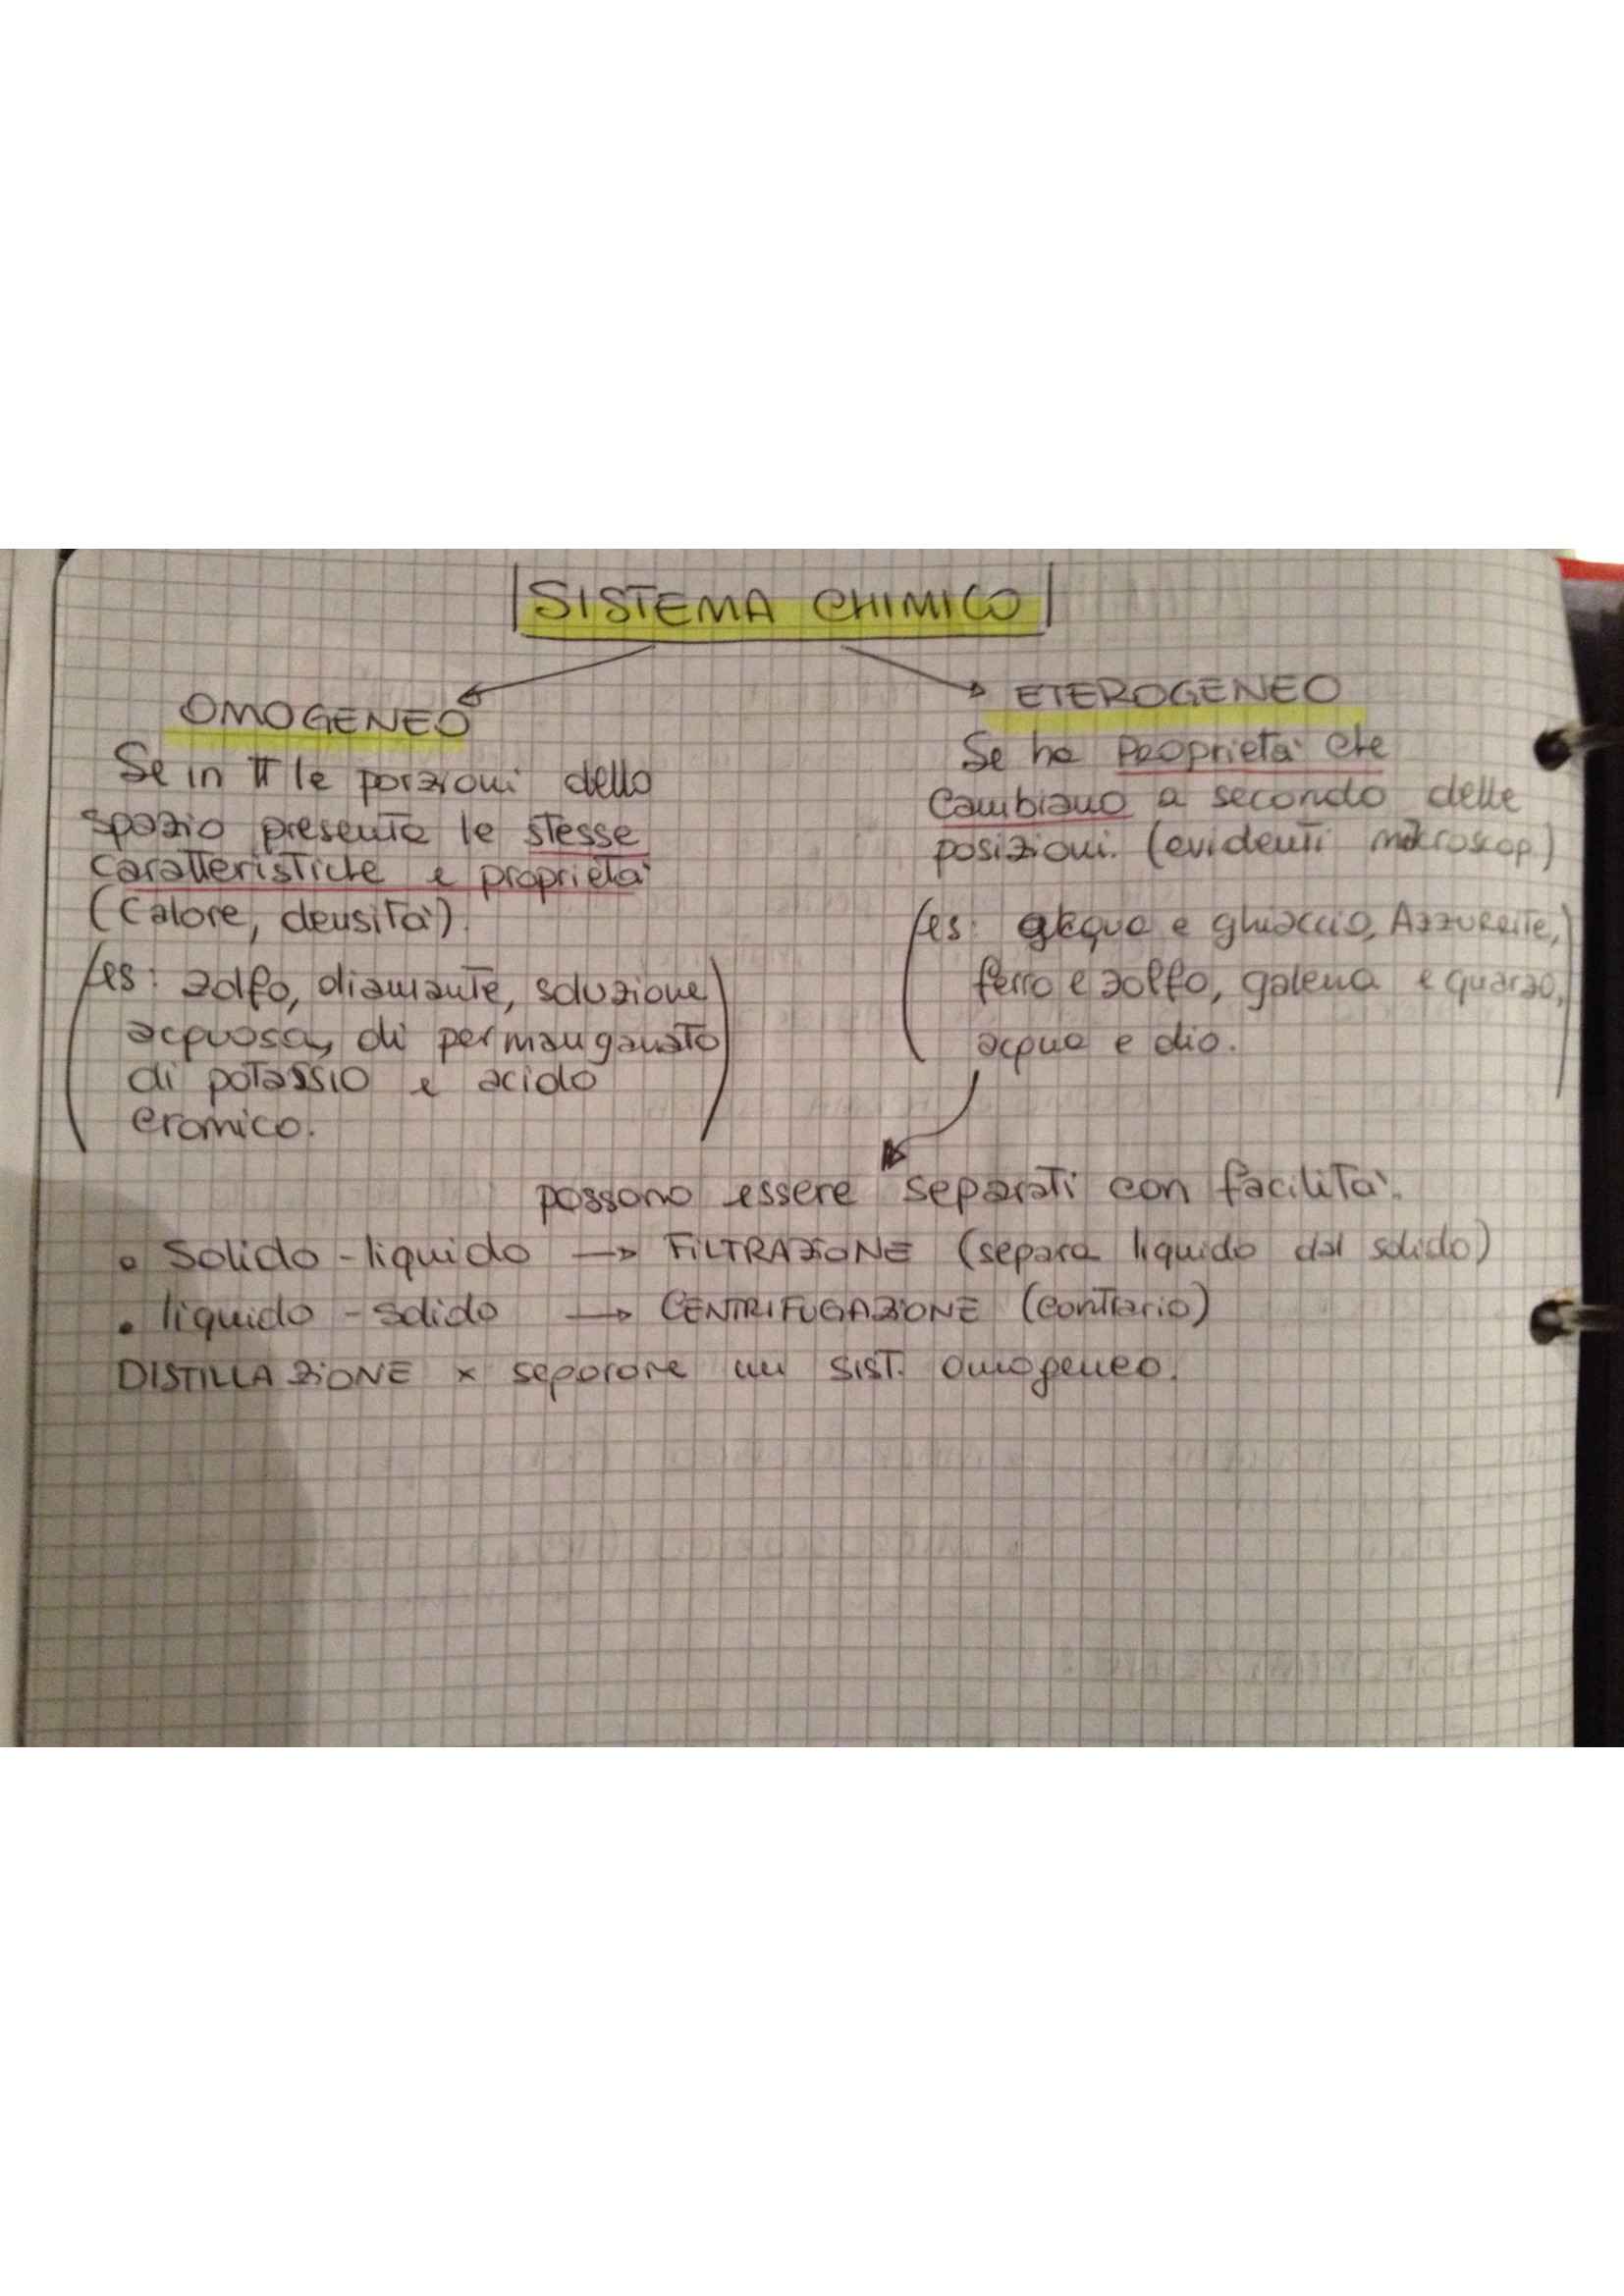 SISTEMA CHIMICO
OMOGENEO
Se in tt le porzioni dello
spazio presenta le stesse
caratteristiche e proprietà
(Calore, densità).
(es: zolfo, diamante, soluzione
acquosa, di permanganato
di potassio e acido
cromico.)
ETEROGENEO
Se ha proprietà che
cambiano a secondo delle
posizioni. (evidenti macroscop.)
(es: acqua e ghiaccio, Azzurrite,
ferro e zolfo, galena e quarzo,
acqua e olio.)
possono essere separati con facilità.
• Solido - liquido → FILTRAZIONE (separa liquido dal solido)
• liquido - solido → CENTRIFUGAZIONE (contrario)
DISTILLAZIONE x separare un SIST. omogeneo.